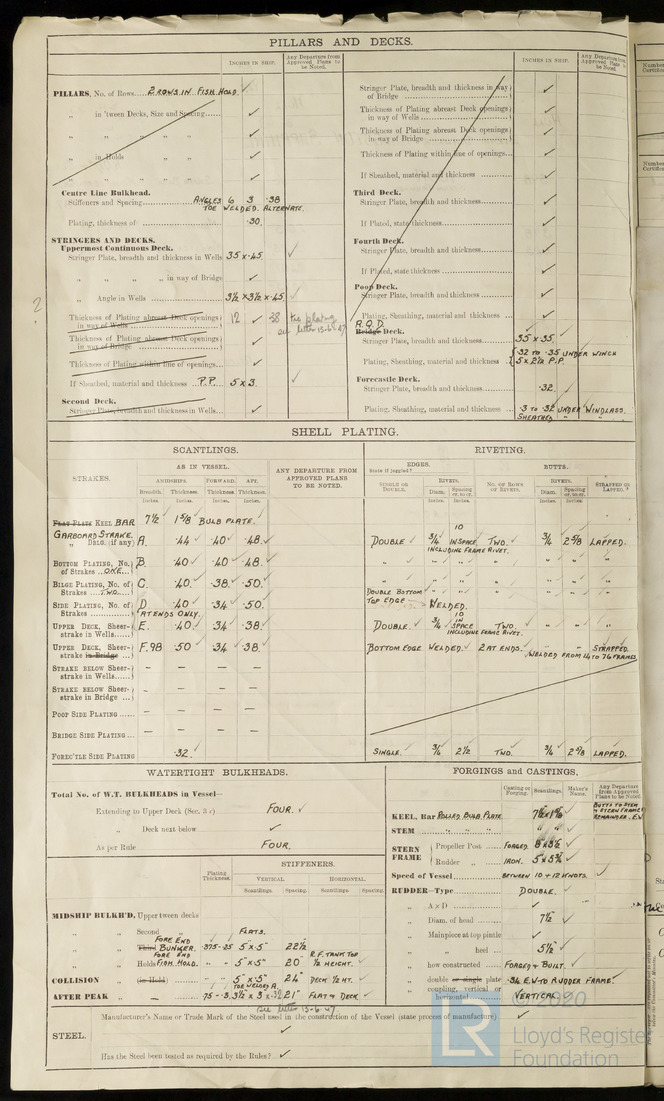 PILLARS AND DECKS.
INCHES IN SHIP.
Any Departure from Approved Plans to be Noted.
PILLARS, No. of Rows 2 ROWS IN FISH HOLD ✓
„ in 'tween Decks, Size and Spacing ✓
„ „ „ „ ✓
„ in Holds „ „ ✓
„ „ „ „ ✓
Centre Line Bulkhead.
Stiffeners and Spacing ANGLES 6 3 .38
TOE WELDED. ALTERNATE.
Plating, thickness of .30.
STRINGERS AND DECKS.
Uppermost Continuous Deck.
Stringer Plate, breadth and thickness in Wells 35 x .45 ✓
„ „ „ „ in way of Bridge ✓
„ Angle in Wells 3½ x 3½ x .45 ✓
Thickness of Plating abreast Deck openings in way of Wells 12 ✓ 38
letter 13-6-47
Thickness of Plating abreast Deck openings in way of Bridge ✓
Thickness of Plating within line of openings ✓
If Sheathed, material and thickness P.P. 5 x 3. ✓
Second Deck.
Stringer Plate, breadth and thickness in Wells ✓
INCHES IN SHIP.
Any Departure from Approved Plans to be Noted.
Stringer Plate, breadth and thickness in way of Bridge ✓
Thickness of Plating abreast Deck openings in way of Wells ✓
Thickness of Plating abreast Deck openings in way of Bridge ✓
Thickness of Plating within line of openings ✓
If Sheathed, material and thickness ✓
Third Deck.
Stringer Plate, breadth and thickness ✓
If Plated, state thickness ✓
Fourth Deck.
Stringer Plate, breadth and thickness ✓
If Plated, state thickness ✓
Poop Deck.
Stringer Plate, breadth and thickness ✓
Plating, Sheathing, material and thickness ✓
R.Q.D.
Bridge Deck.
Stringer Plate, breadth and thickness 35 x .35.
Plating, Sheathing, material and thickness .32 TO .35 UNDER WINCH
5 x 2½ P.P.
Forecastle Deck.
Stringer Plate, breadth and thickness .32.
Plating, Sheathing, material and thickness .3 TO .32 UNDER WINDLASS.
SHEATHED
SHELL PLATING.
SCANTLINGS.
RIVETING.
STRAKES.
AS IN VESSEL.
ANY DEPARTURE FROM APPROVED PLANS TO BE NOTED.
EDGES.
State if joggled?
BUTTS.
AMIDSHIPS. FORWARD. AFT.
Breadth. Thickness. Thickness. Thickness.
Inches. Inches. Inches. Inches.
SINGLE OR DOUBLE.
RIVETS.
Diam. Spacing cr. to cr.
Inches. Inches.
NO. OF ROWS OF RIVETS.
RIVETS.
Diam. Spacing cr. to cr.
Inches. Inches.
STRAPPED OR LAPPED.
Flat Plate KEEL BAR 7½ 1⅝ BULB PLATE.
GARBOARD STRAKE.
„ Dblg. (if any) A. .44 ✓ .40 ✓ .48. ✓ DOUBLE ✓ ¾ 10 IN SPACE TWO. ✓ ¾ 2⅝ LAPPED.
INCLUDING FRAME RIVET.
BOTTOM PLATING, No. of Strakes ONE B. .40 ✓ .40 ✓ .48. ✓ „ „ „ „ „ „ „
BILGE PLATING, No. of Strakes TWO C. .40. ✓ .38. ✓ .50. ✓ „ „ „ „ „ „ „
DOUBLE BOTTOM
TOP EDGE WELDED.
SIDE PLATING, No. of Strakes D .40 ✓ .34 ✓ .50. ✓
AT ENDS ONLY.
UPPER DECK, Sheerstrake in Wells E. .40. ✓ .34 ✓ .38. ✓ DOUBLE. ✓ ¾ 10 IN SPACE TWO. ✓ „ „ „
INCLUDING FRAME RIVET.
UPPER DECK, Sheerstrake in Bridge F. 98 .50 ✓ .34 ✓ .38. ✓ BOTTOM EDGE WELDED. ✓ 2 AT ENDS. STRAPPED.
WELDED FROM 14 TO 76 FRAMES.
STRAKE BELOW Sheerstrake in Wells – – – –
STRAKE BELOW Sheerstrake in Bridge – – – –
POOP SIDE PLATING – – – –
BRIDGE SIDE PLATING – – – –
FOREC'TLE SIDE PLATING .32. ✓ SINGLE. ✓ ¾ 2½ TWO. ✓ ¾ 2⅝ LAPPED.
WATERTIGHT BULKHEADS.
Total No. of W.T. BULKHEADS in Vessel—
Extending to Upper Deck (Sec. 3 c) FOUR. ✓
„ Deck next below ✓
As per Rule FOUR.
Plating Thickness.
STIFFENERS.
VERTICAL. HORIZONTAL.
Scantlings. Spacing. Scantlings. Spacing.
MIDSHIP BULKH'D, Upper tween decks
„ „ Second „ FLATS.
FORE END
„ „ Third BUNKER. .375-.25 5" x 5" 22½
FORE END
„ „ Holds FISH HOLD. „ „ 5" x 5" 20" R.F. TANK TOP ½ HEIGHT.
COLLISION „ (in Hold) „ 5" x 5" 24" DECK ½ HT.
TOE WELDED A.
AFTER PEAK „ „ 3½" x 3 21" FLAT & DECK
See letter 13-6-47
STEEL.
Manufacturer's Name or Trade Mark of the Steel used in the construction of the Vessel (state process of manufacture) ✓
Has the Steel been tested as required by the Rules? ✓
FORGINGS and CASTINGS.
Casting or Forging. Scantlings. Maker's Name. Any Departure from Approved Plans to be Noted.
KEEL, Bar ROLLED BULB PLATE. 7½ x 1⅝ ✓ BUTTS TO STEM & STERN FRAME REMAINDER E.W
STEM „ „ „ „ „ ✓
STERN FRAME
Propeller Post FORGED.
Rudder „ IRON.
Speed of Vessel BETWEEN 10 & 12 KNOTS. ✓
RUDDER—Type DOUBLE. ✓
„ A × D ✓
„ Diam. of head 7½" ✓
„ Mainpiece at top pintle ✓
„ „ heel 5½" ✓
„ how constructed FORGED & BUILT. ✓
„ double or single plate .34 E.W TO RUDDER FRAME.
„ coupling, vertical or horizontal VERTICAL.
© 2020
LR
Lloyd's Register
Foundation